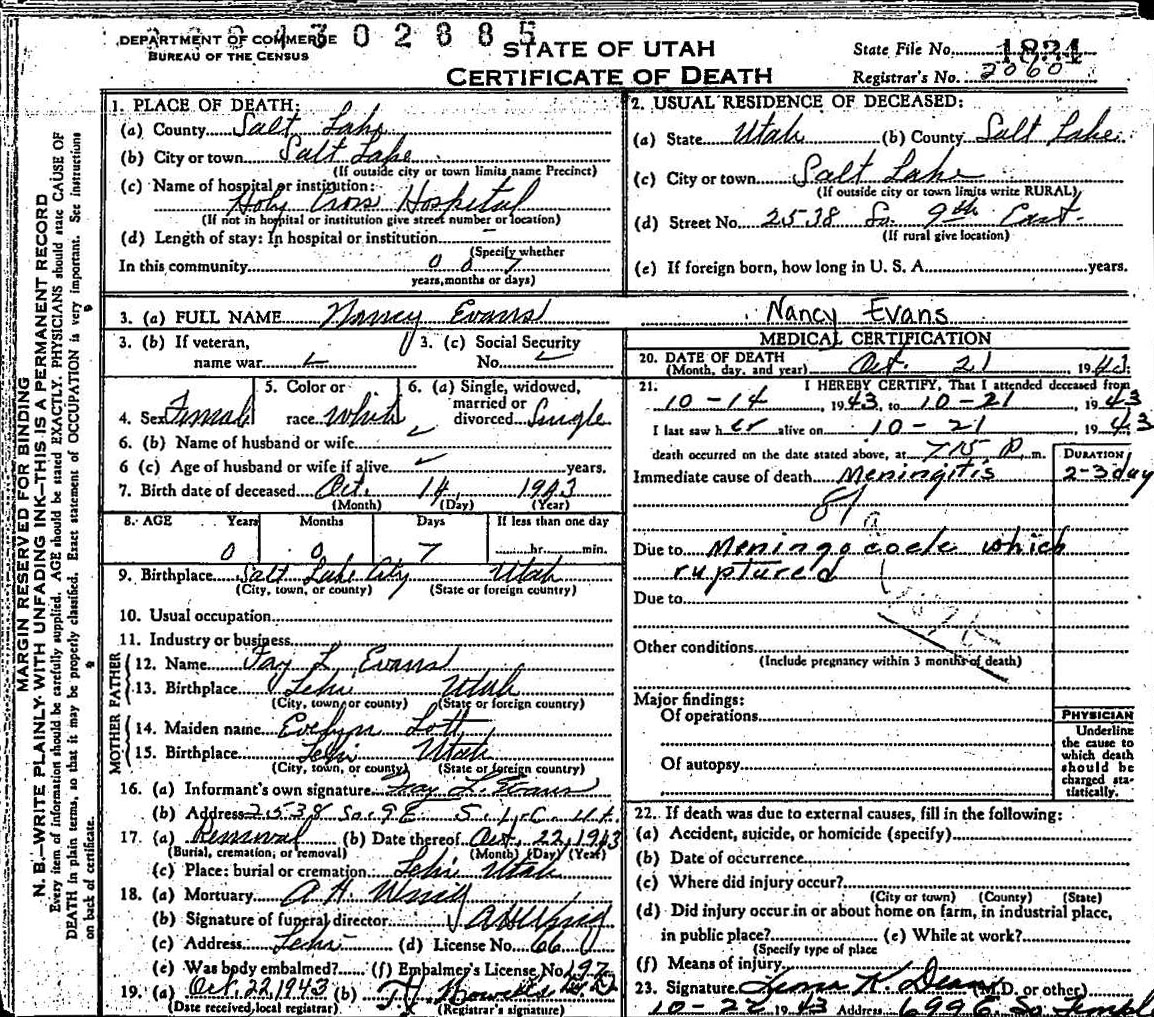 DEPARTMENT OF COMMERCE
BUREAU OF THE CENSUS
302885
STATE OF UTAH
CERTIFICATE OF DEATH
State File No. 1821
Registrar's No. 2060
MARGIN RESERVED FOR BINDING
N. B.—WRITE PLAINLY WITH UNFADING INK—THIS IS A PERMANENT RECORD
Every item of information should be carefully supplied. AGE should be stated EXACTLY. PHYSICIANS should state CAUSE OF
DEATH in plain terms, so that it may be properly classified. Exact statement of OCCUPATION is very important. See instructions
on back of certificate.
1. PLACE OF DEATH:
(a) County Salt Lake
(b) City or town Salt Lake
(If outside city or town limits name Precinct)
(c) Name of hospital or institution:
Holy Cross Hospital
(If not in hospital or institution give street number or location)
(d) Length of stay: In hospital or institution -
(Specify whether
In this community 0 0 7
years, months or days)
2. USUAL RESIDENCE OF DECEASED:
(a) State Utah (b) County Salt Lake
(c) City or town Salt Lake
(If outside city or town limits write RURAL)
(d) Street No. 2538 So. 9th East
(If rural give location)
(e) If foreign born, how long in U. S. A. years.
3. (a) FULL NAME Nancy Evans
Nancy Evans
3. (b) If veteran,
name war
3. (c) Social Security
No.
4. Sex Female
5. Color or
race White
6. (a) Single, widowed,
married or
divorced Single
6. (b) Name of husband or wife
6 (c) Age of husband or wife if alive years.
7. Birth date of deceased Oct. 14, 1943
(Month) (Day) (Year)
8. AGE Years Months Days If less than one day
0 0 7 hr. min.
9. Birthplace Salt Lake City Utah
(City, town, or county) (State or foreign country)
10. Usual occupation
11. Industry or business
FATHER
12. Name Fay L. Evans
13. Birthplace Lehi Utah
(City, town, or county) (State or foreign country)
MOTHER
14. Maiden name Evelyn Lott
15. Birthplace Lehi Utah
(City, town, or county) (State or foreign country)
16. (a) Informant's own signature Fay L. Evans
(b) Address 2538 So. 9 E. S. L. C. Ut.
17. (a) Removal (b) Date thereof Oct. 22, 1943
(Burial, cremation, or removal) (Month) (Day) (Year)
(c) Place: burial or cremation Lehi Utah
18. (a) Mortuary A. H.
(b) Signature of funeral director
(c) Address Lehi (d) License No. 66
(e) Was body embalmed? (f) Embalmer's License No. 197
19. (a) Oct. 22, 1943 (b)
(Date received, local registrar) (Registrar's signature)
MEDICAL CERTIFICATION
20. DATE OF DEATH
(Month, day, and year) Oct. 21, 1943
21. I HEREBY CERTIFY, That I attended deceased from
10-14, 1943, to 10-21, 1943
I last saw her alive on 10-21 1943
death occurred on the date stated above, at 715 P. m.
DURATION
Immediate cause of death Meningitis 2-3 day
Due to Meningocoele which
ruptured
Due to
Other conditions
(Include pregnancy within 3 months of death)
Major findings:
Of operations
Of autopsy
PHYSICIAN
Underline
the cause to
which death
should be
charged sta-
tistically.
22. If death was due to external causes, fill in the following:
(a) Accident, suicide, or homicide (specify)
(b) Date of occurrence
(c) Where did injury occur?
(City or town) (County) (State)
(d) Did injury occur in or about home on farm, in industrial place,
in public place? (e) While at work?
(Specify type of place
(f) Means of injury
23. Signature K. Dean (M.D. or other)
10-22 1943 Address 699 E. So. Templ